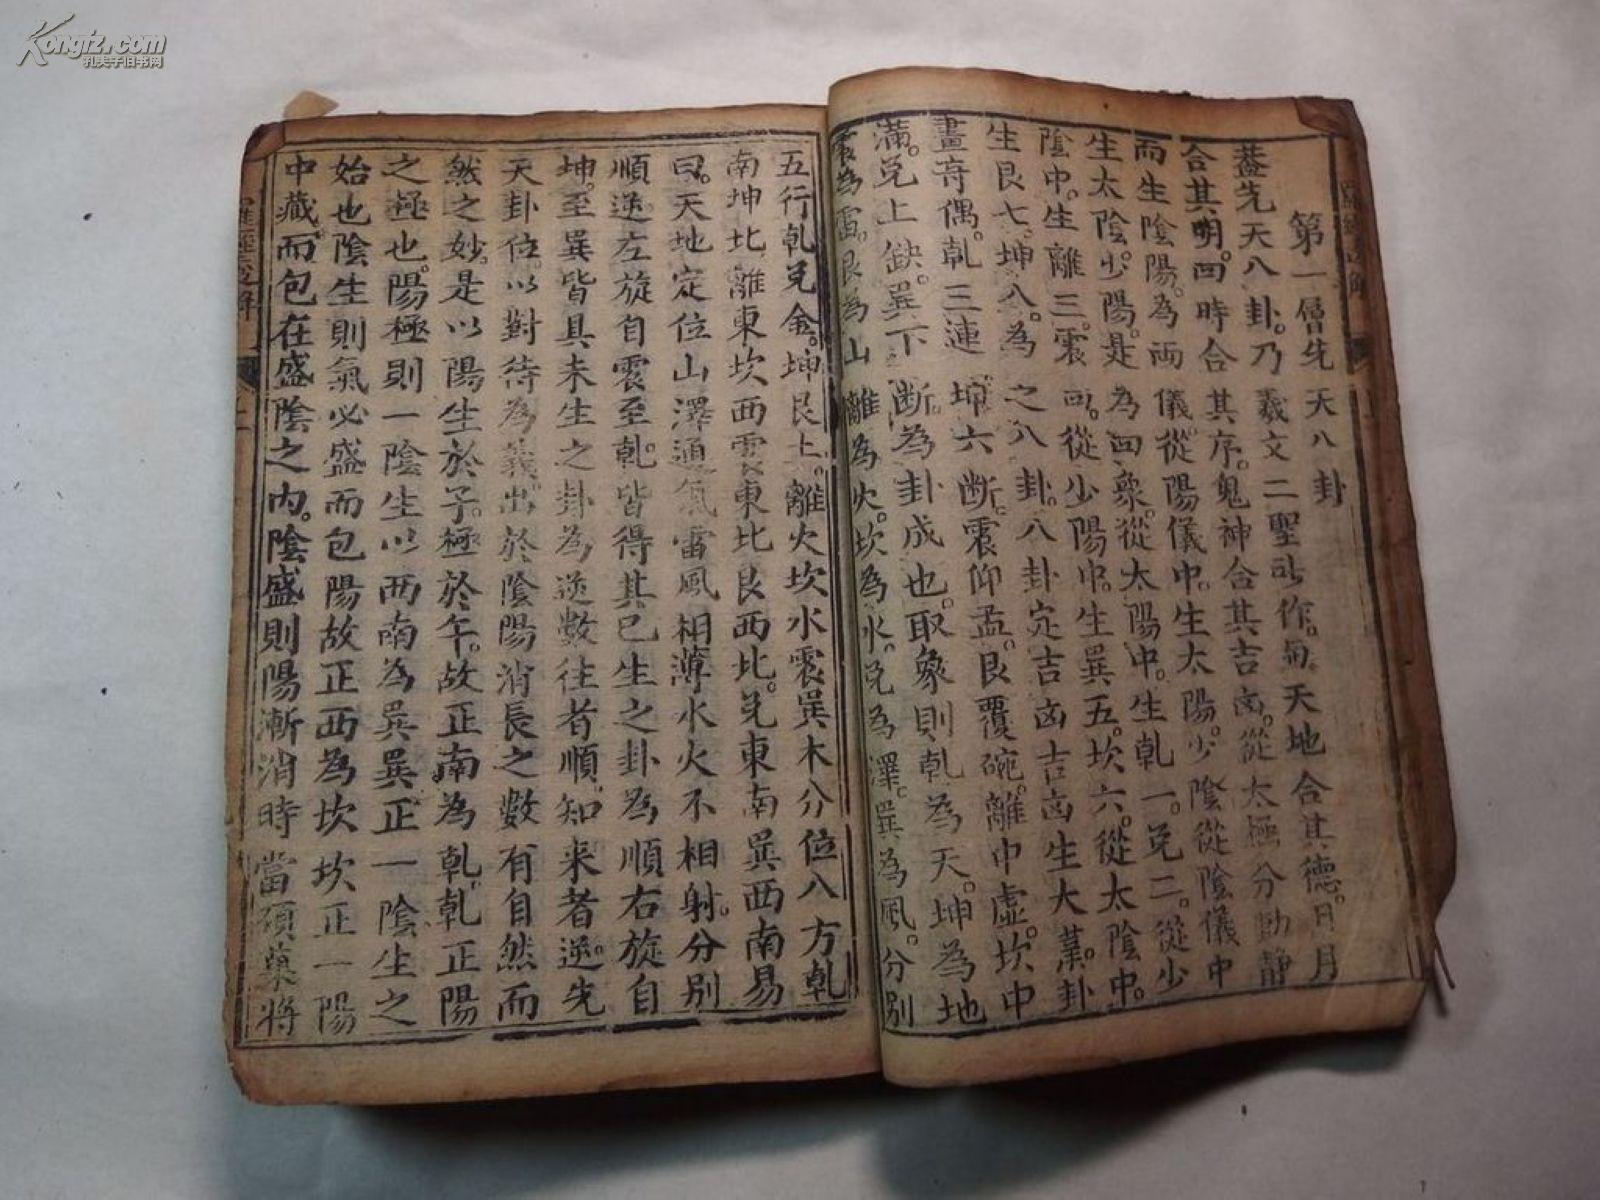 Kongfz.com
孔夫子旧书网
第一層先天八卦
蓋先天八卦。乃羲文二聖所作。與天地合其德。日月
合其明。四時合其序。鬼神合其吉凶。從太極分動靜
而生陰陽。為兩儀。從陽儀中。生太陽。少陰從陰儀中
生太陰。少陽。是為四象。從太陽中。生乾一。兌二。從少
陰中。生離三。震四。從少陽中。生巽五。坎六。從太陰中。
生艮七。坤八。為之八卦。八卦定吉凶吉凶生大業。卦
畫奇偶。乾三連坤六断。震仰盂。艮覆碗。離中虛。坎中
滿。兌上缺。巽下断。為卦成也。取象則乾為天。坤為地
震為雷。艮為山離為火。坎為水。兌為澤。巽為風。分別
五行乾兌金。坤艮土。離火坎水震巽木分位八方乾
南坤北離東坎西震東北艮西北。兌東南巽西南易
曰。天地定位山澤通氣雷風相薄水火不相射。分別
順逆左旋自震至乾。皆得其已生之卦為順右旋自
坤。至巽皆具未生之卦為逆數往者順。知来者逆。先
天卦位。以對待為義。出於陰陽消長之數有自然而
然之妙。是以陽生於子。極於午。故正南為乾。乾正陽
之極也。陽極則一陰生以西南為巽巽正一陰生之
始也陰生則氣必盛而包陽故正西為坎坎正一陽
中藏。而包在盛陰之内。陰盛則陽漸消時當碩菓將